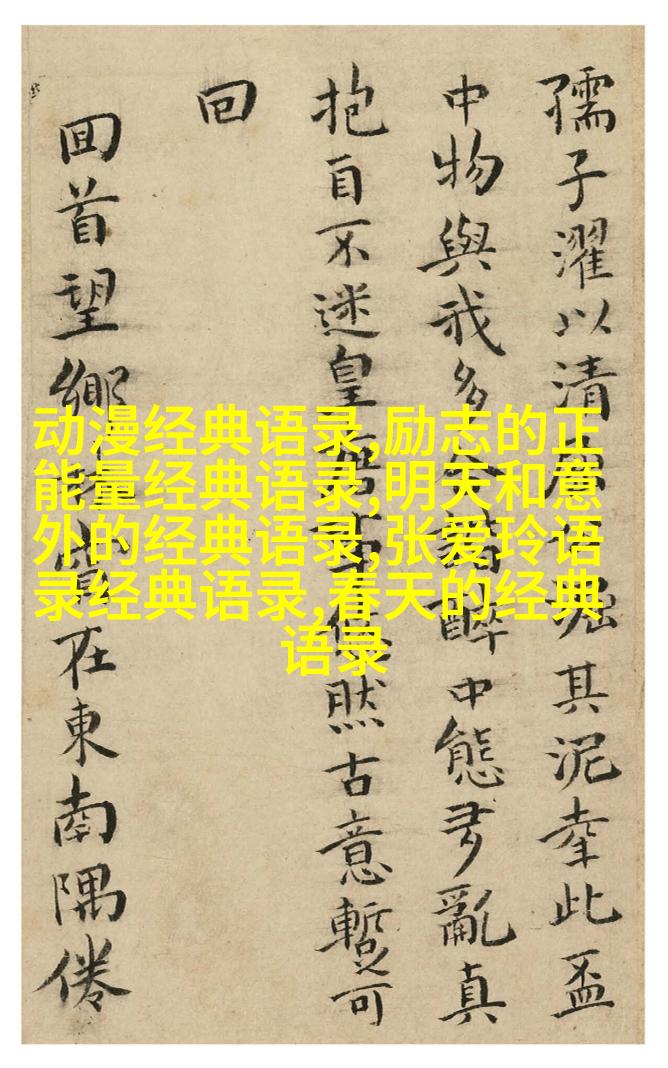 孺子濯以清其泥此盃
中物與我多醉中態多亂真
抱自不迷皇然古意暫可
回
回首望鄉在東南隅倦
动漫经典语录,励志的正
能量经典语录,明天和意
外的经典语录,张爱玲语
录经典语录,春天的经典
语录